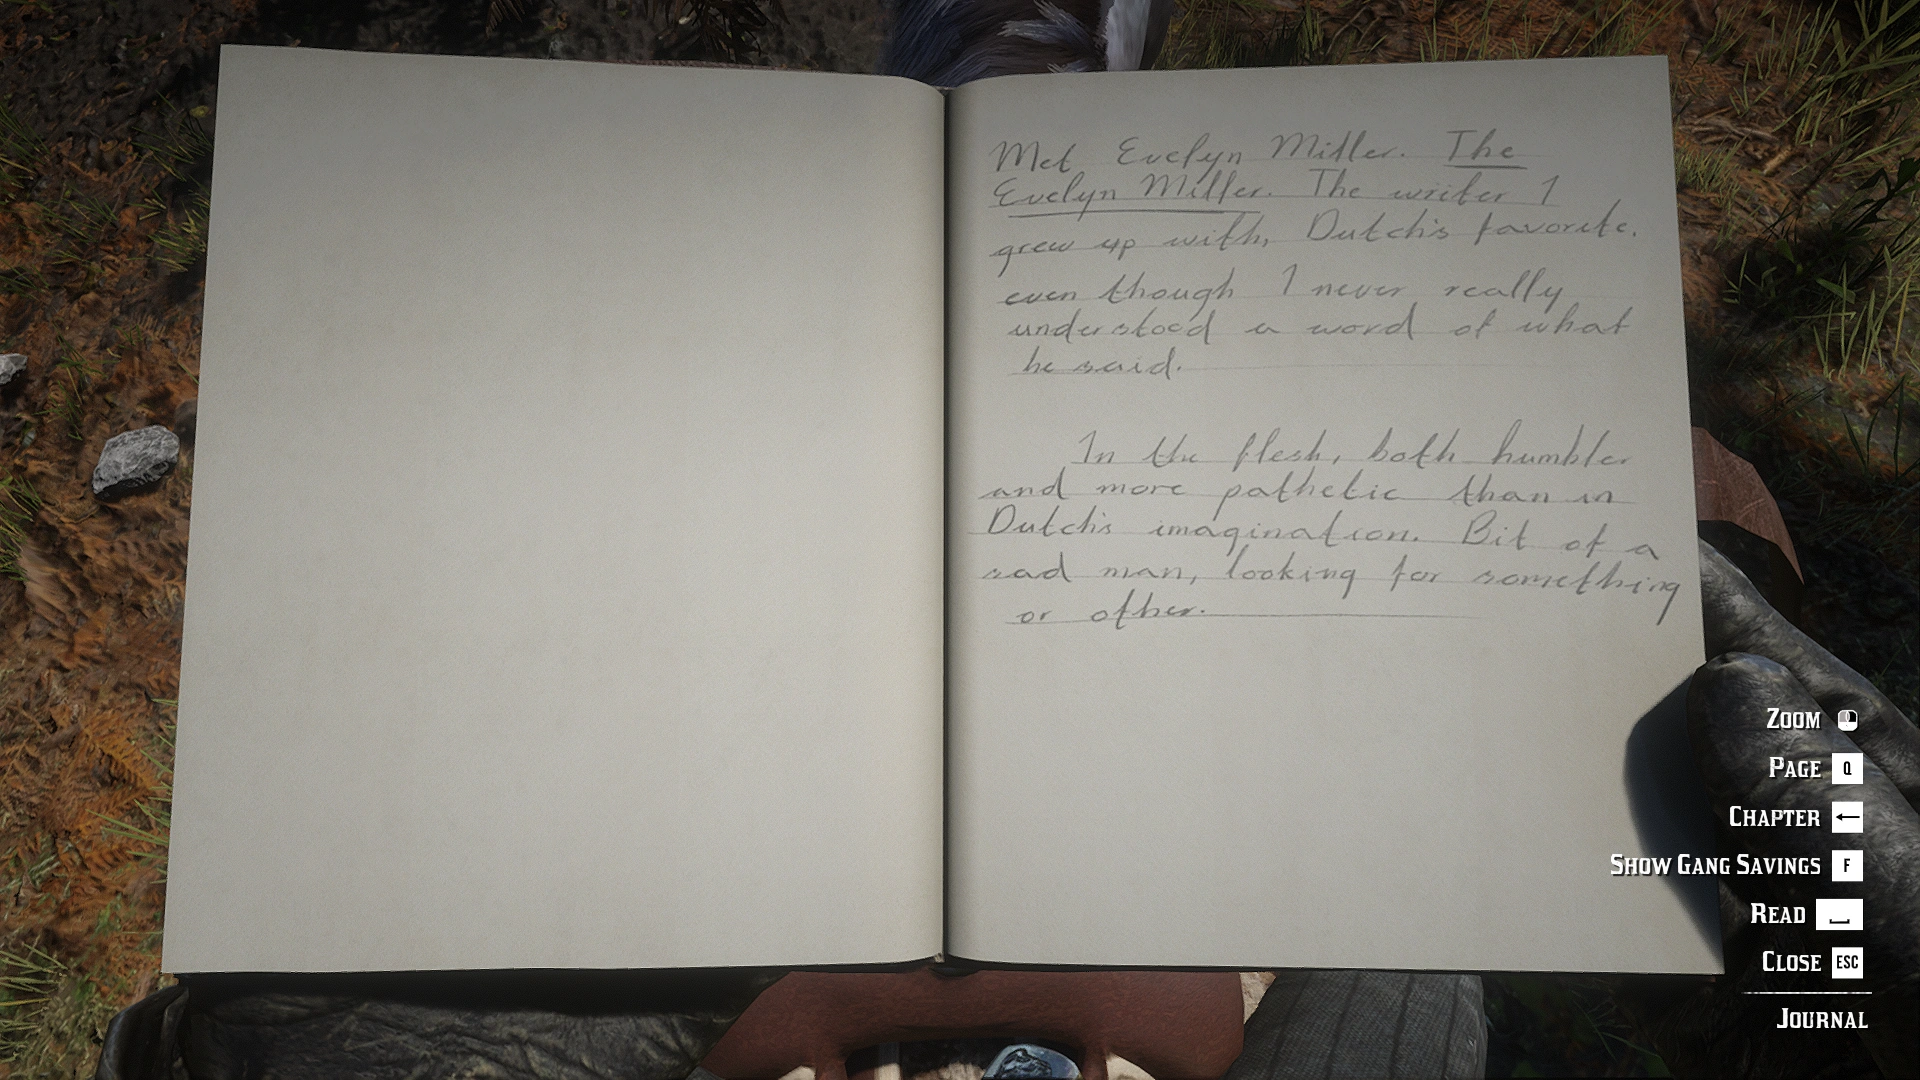 Met Evelyn Miller. The
Evelyn Miller. The writer I
grew up with, Dutch's favorite.
even though I never really
understood a word of what
he said.
In the flesh, both humbler
and more pathetic than in
Dutch's imagination. Bit of a
sad man, looking for something
or other.
ZOOM
PAGE Q
CHAPTER ←
SHOW GANG SAVINGS F
READ
CLOSE ESC
JOURNAL